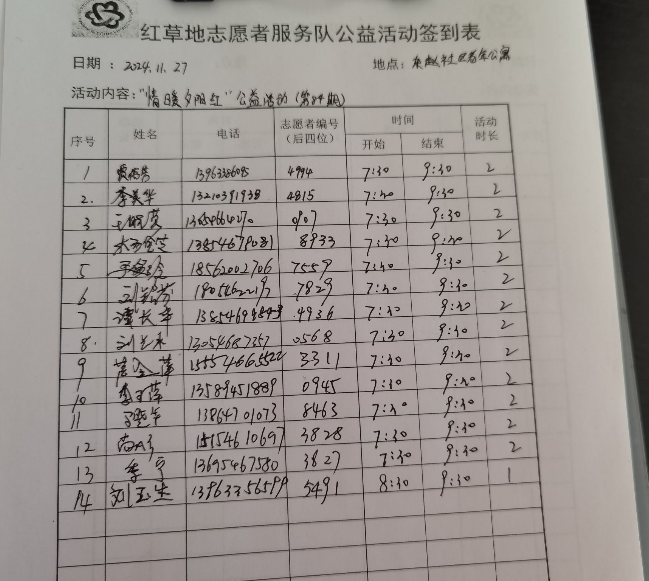 红草地志愿者服务队公益活动签到表
日期：2024.11.27 地点：社区老年公寓
活动内容："情暖夕阳红"公益活动（第84期）
序号 姓名 电话 志愿者编号（后四位） 时间 开始 结束 活动时长
1 4994 7:30 9:30 2
2. 李美华 13210391938 4815 7:30 9:30 2
3 0907 7:30 9:30 2
4 13854679081 8933 7:30 9:30 2
5 18562002706 7559 7:30 9:30 2
6 7829 7:30 9:30 2
7 谭长华 4936 7:30 9:30 2
8. 13054687357 0568 7:30 9:30 2
9 15554665522 3311 7:30 9:30 2
10 13589451889 0945 7:30 9:30 2
11 13864701073 8463 7:30 9:30 2
12 15154610697 3828 7:30 9:30 2
13 李宁 13695467580 3827 7:30 9:30 2
14 刘玉生 13963356599 5491 8:30 9:30 1